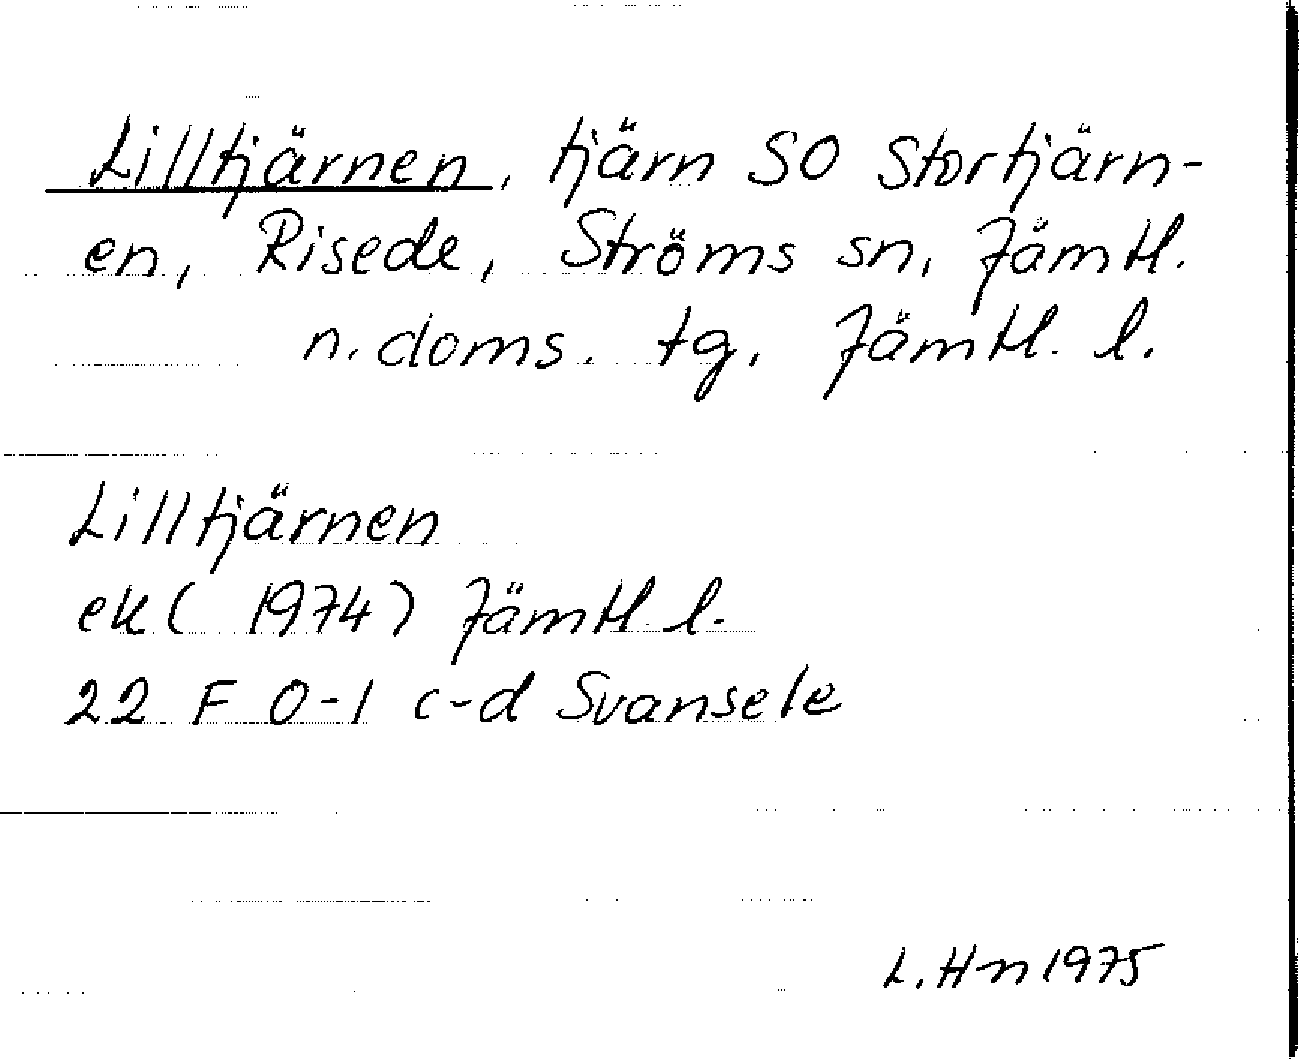 Lilltjärnen, tjärn SO Stortjärn-
en, Risede, Ströms sn, Jämtl.
n. doms. tg, Jämtl. l.
Lilltjärnen
ek (1974) Jämtl. l.
22 F 0-1 c-d Svansele
L. Hn 1975